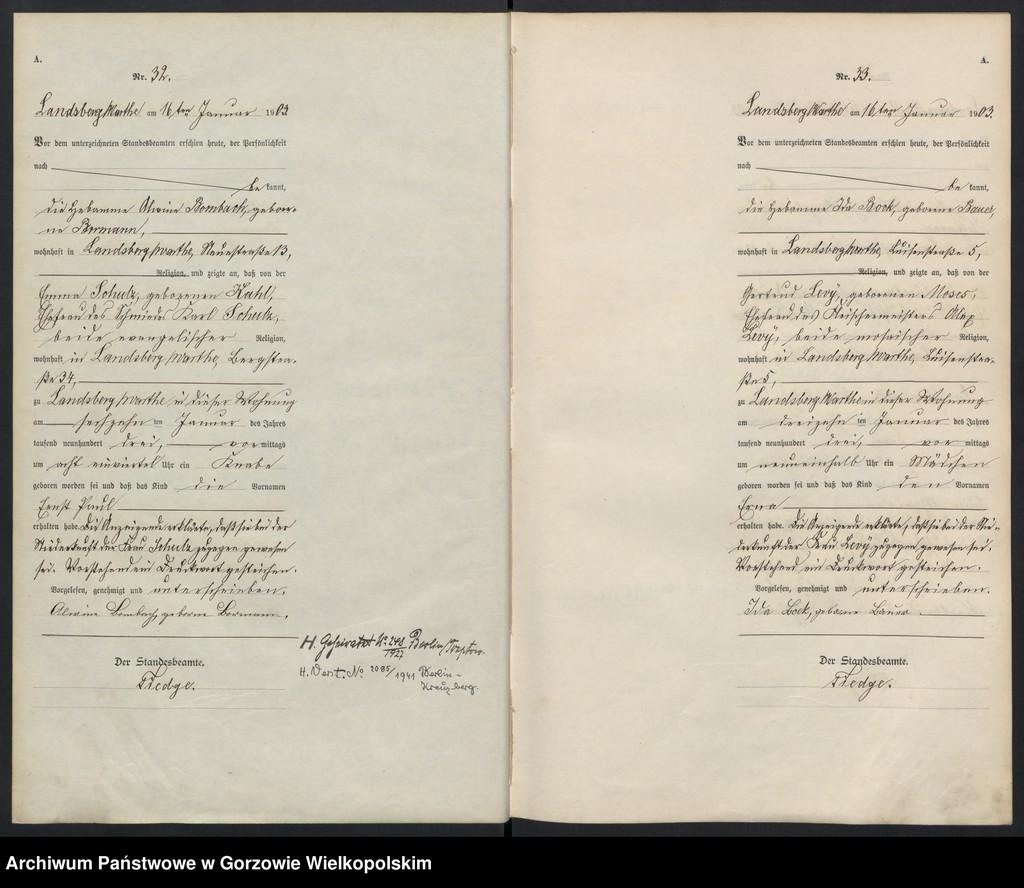 A.
Nr. 32.
Landsberg/Warthe am 16ten Januar 1903
Vor dem unterzeichneten Standesbeamten erschien heute, der Persönlichkeit
nach
be kannt,
die Hebamme Alwine Bombach, gebore-
ne Bormann,
wohnhaft in Landsberg/Warthe, Neuestraße 13,
Religion, und zeigte an, daß von der
Emma Schulz, geborenen Kuhl,
Ehefrau des Schmieds Karl Schulz,
beide evangelischer Religion,
wohnhaft in Landsberg/Warthe, Bergstra-
ße 34,
zu Landsberg/Warthe in dieser Wohnung
am sechzehn ten Januar des Jahres
tausend neunhundert drei, vor mittags
um acht einviertel Uhr ein Knabe
geboren worden sei und daß das Kind die Vornamen
Ernst Paul
erhalten habe. Die Anzeigende erklärte, daß sie bei der
Niederkunft der Frau Schulz zugegen gewesen
sei. Vorstehend ein Druckwort gestrichen.
Vorgelesen, genehmigt und unterschrieben.
Alwine Bombach, geborne Bormann.
Der Standesbeamte.
Fledge.
H. Geheiratet No 248/1927 Berlin/Treptow.
H. Verst. No. 2085/1941 Berlin-
Kreuzberg.
A.
Nr. 33.
Landsberg/Warthe am 16ten Januar 1903.
Vor dem unterzeichneten Standesbeamten erschien heute, der Persönlichkeit
nach
be kannt,
die Hebamme Ida Bock, geborene Bauer,
wohnhaft in Landsberg/Warthe, Luisenstraße 5,
Religion, und zeigte an, daß von der
Gertrud Levÿ, geborenen Moses,
Ehefrau des Fleischermeisters Alex
Levÿ, beide mosaischer Religion,
wohnhaft in Landsberg/Warthe, Luisenstra-
ße 5,
zu Landsberg/Warthe in dieser Wohnung
am dreizehn ten Januar des Jahres
tausend neunhundert drei, vor mittags
um neuneinhalb Uhr ein Mädchen
geboren worden sei und daß das Kind den Vornamen
Erna
erhalten habe. Die Anzeigende erklärte, daß sie bei der Nie-
derkunft der Frau Levÿ zugegen gewesen sei.
Vorstehend ein Druckwort gestrichen.
Vorgelesen, genehmigt und unterschrieben.
Ida Bock, geborene Bauer
Der Standesbeamte.
Fledge.
Archiwum Państwowe w Gorzowie Wielkopolskim